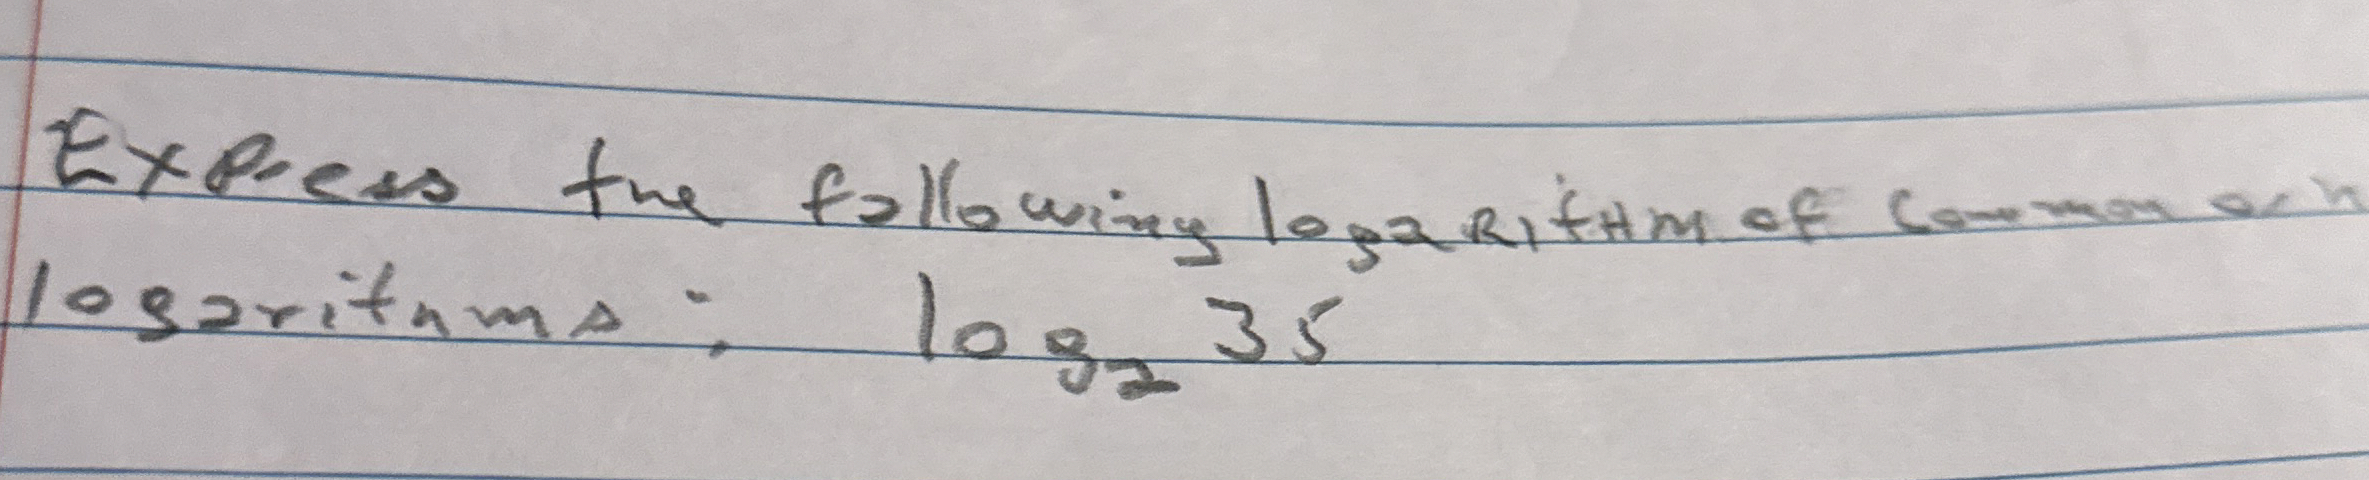 Express the following logaRitHm of Common or n
logarithms: log₂ 35